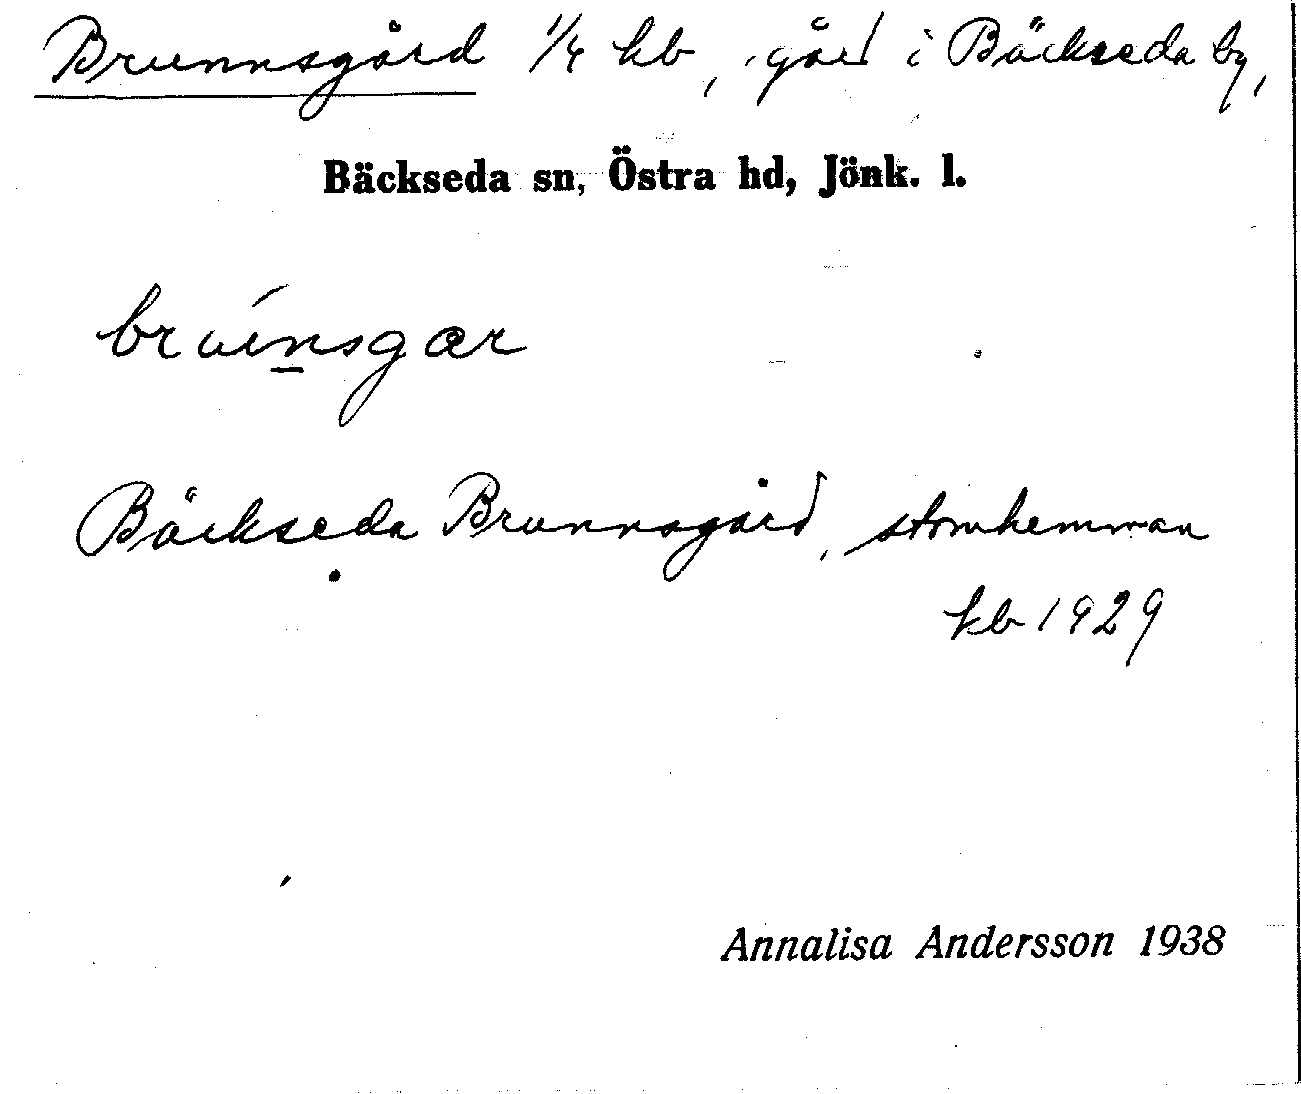 Brunnsgård 1/4 kb, gård i Bäckseda by,
Bäckseda sn, Östra hd, Jönk. l.
Bäckseda Brunnsgård, stomhemman
kb 1929
Annalisa Andersson 1938